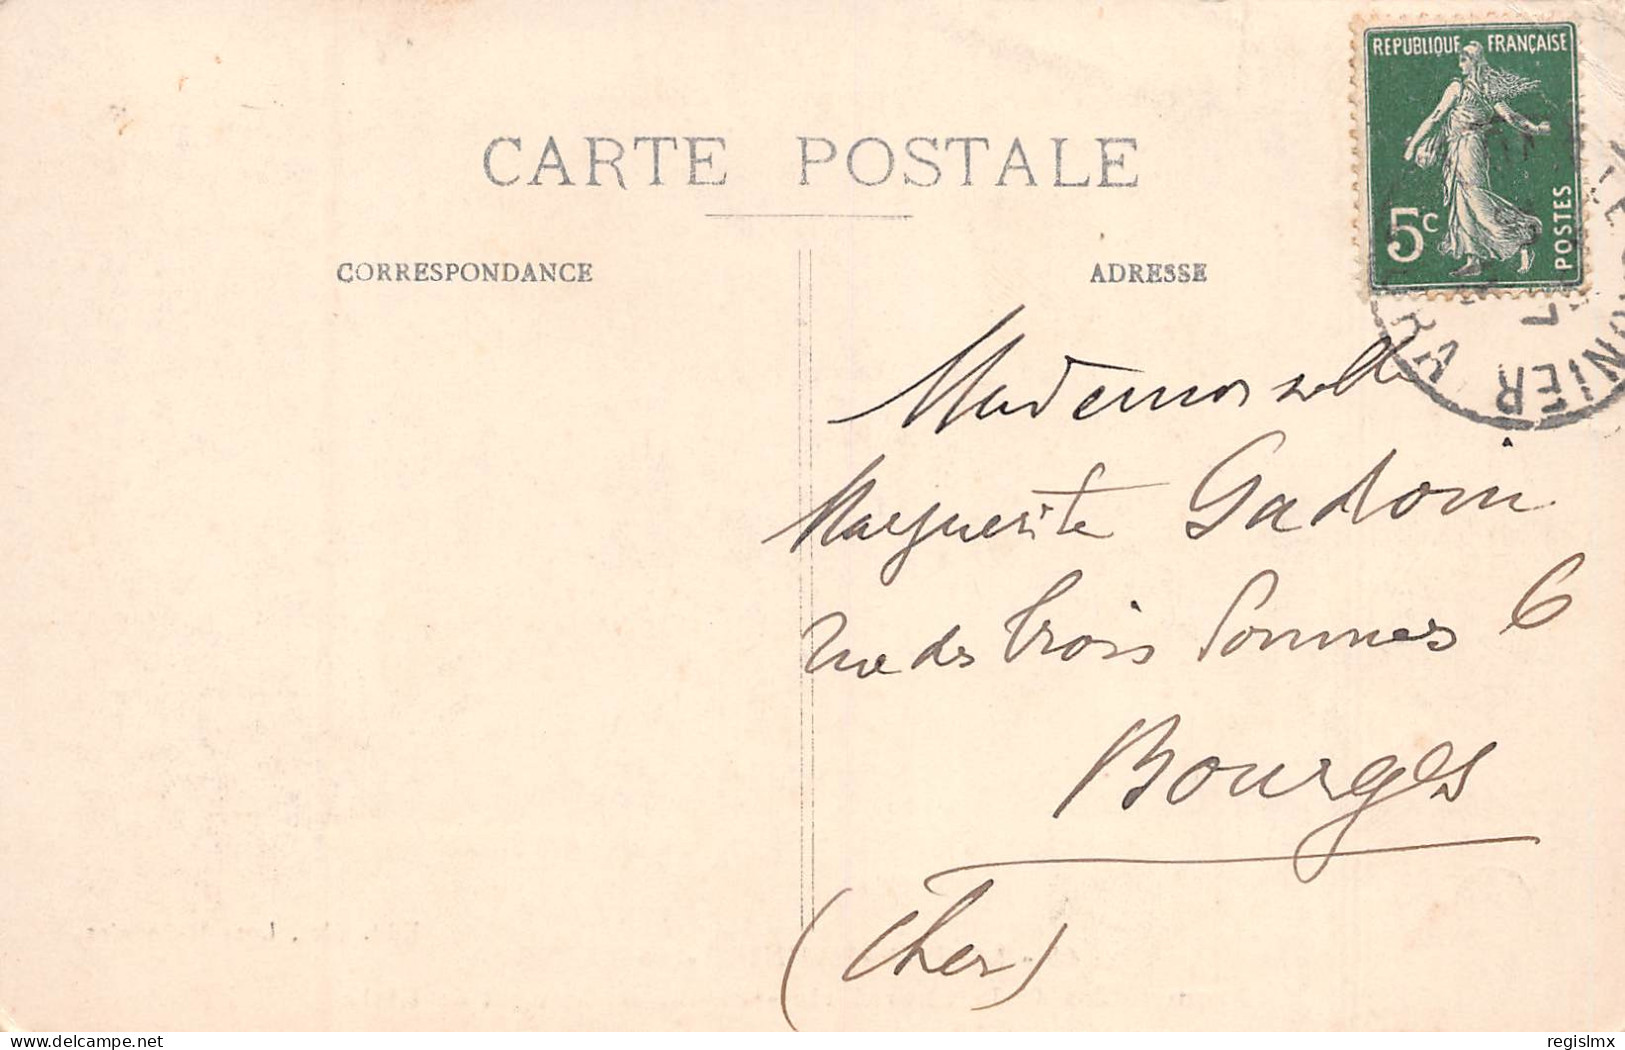 CARTE POSTALE
CORRESPONDANCE
ADRESSE
REPUBLIQUE FRANÇAISE
5c
POSTES
Mademoiselle
Marguerite Gadoin
rue des trois Pommes 6
Bourges
(Cher)
delcampe.net
regislmx